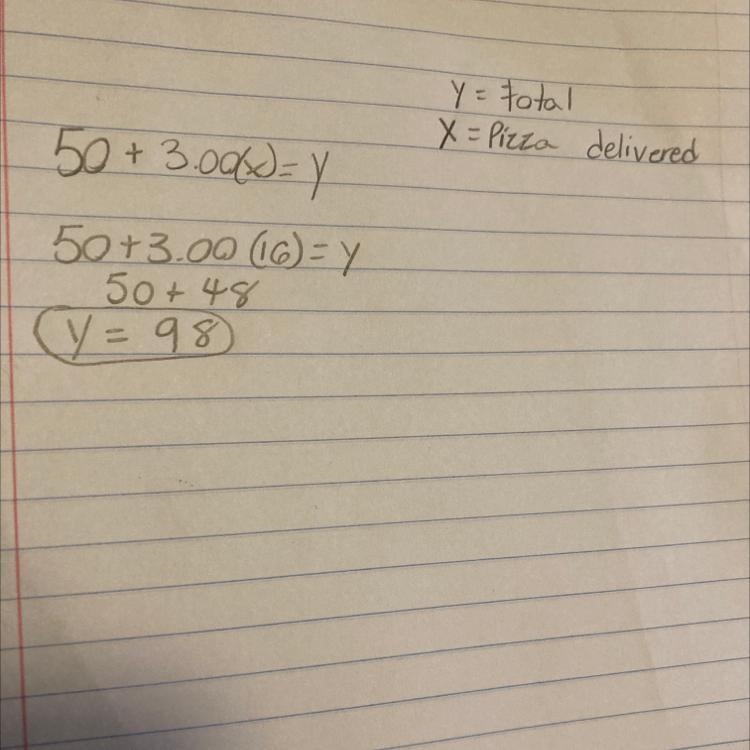 Y = total
X = Pizza delivered
50 + 3.00(x) = y
50 + 3.00 (16) = y
50 + 48
y = 98